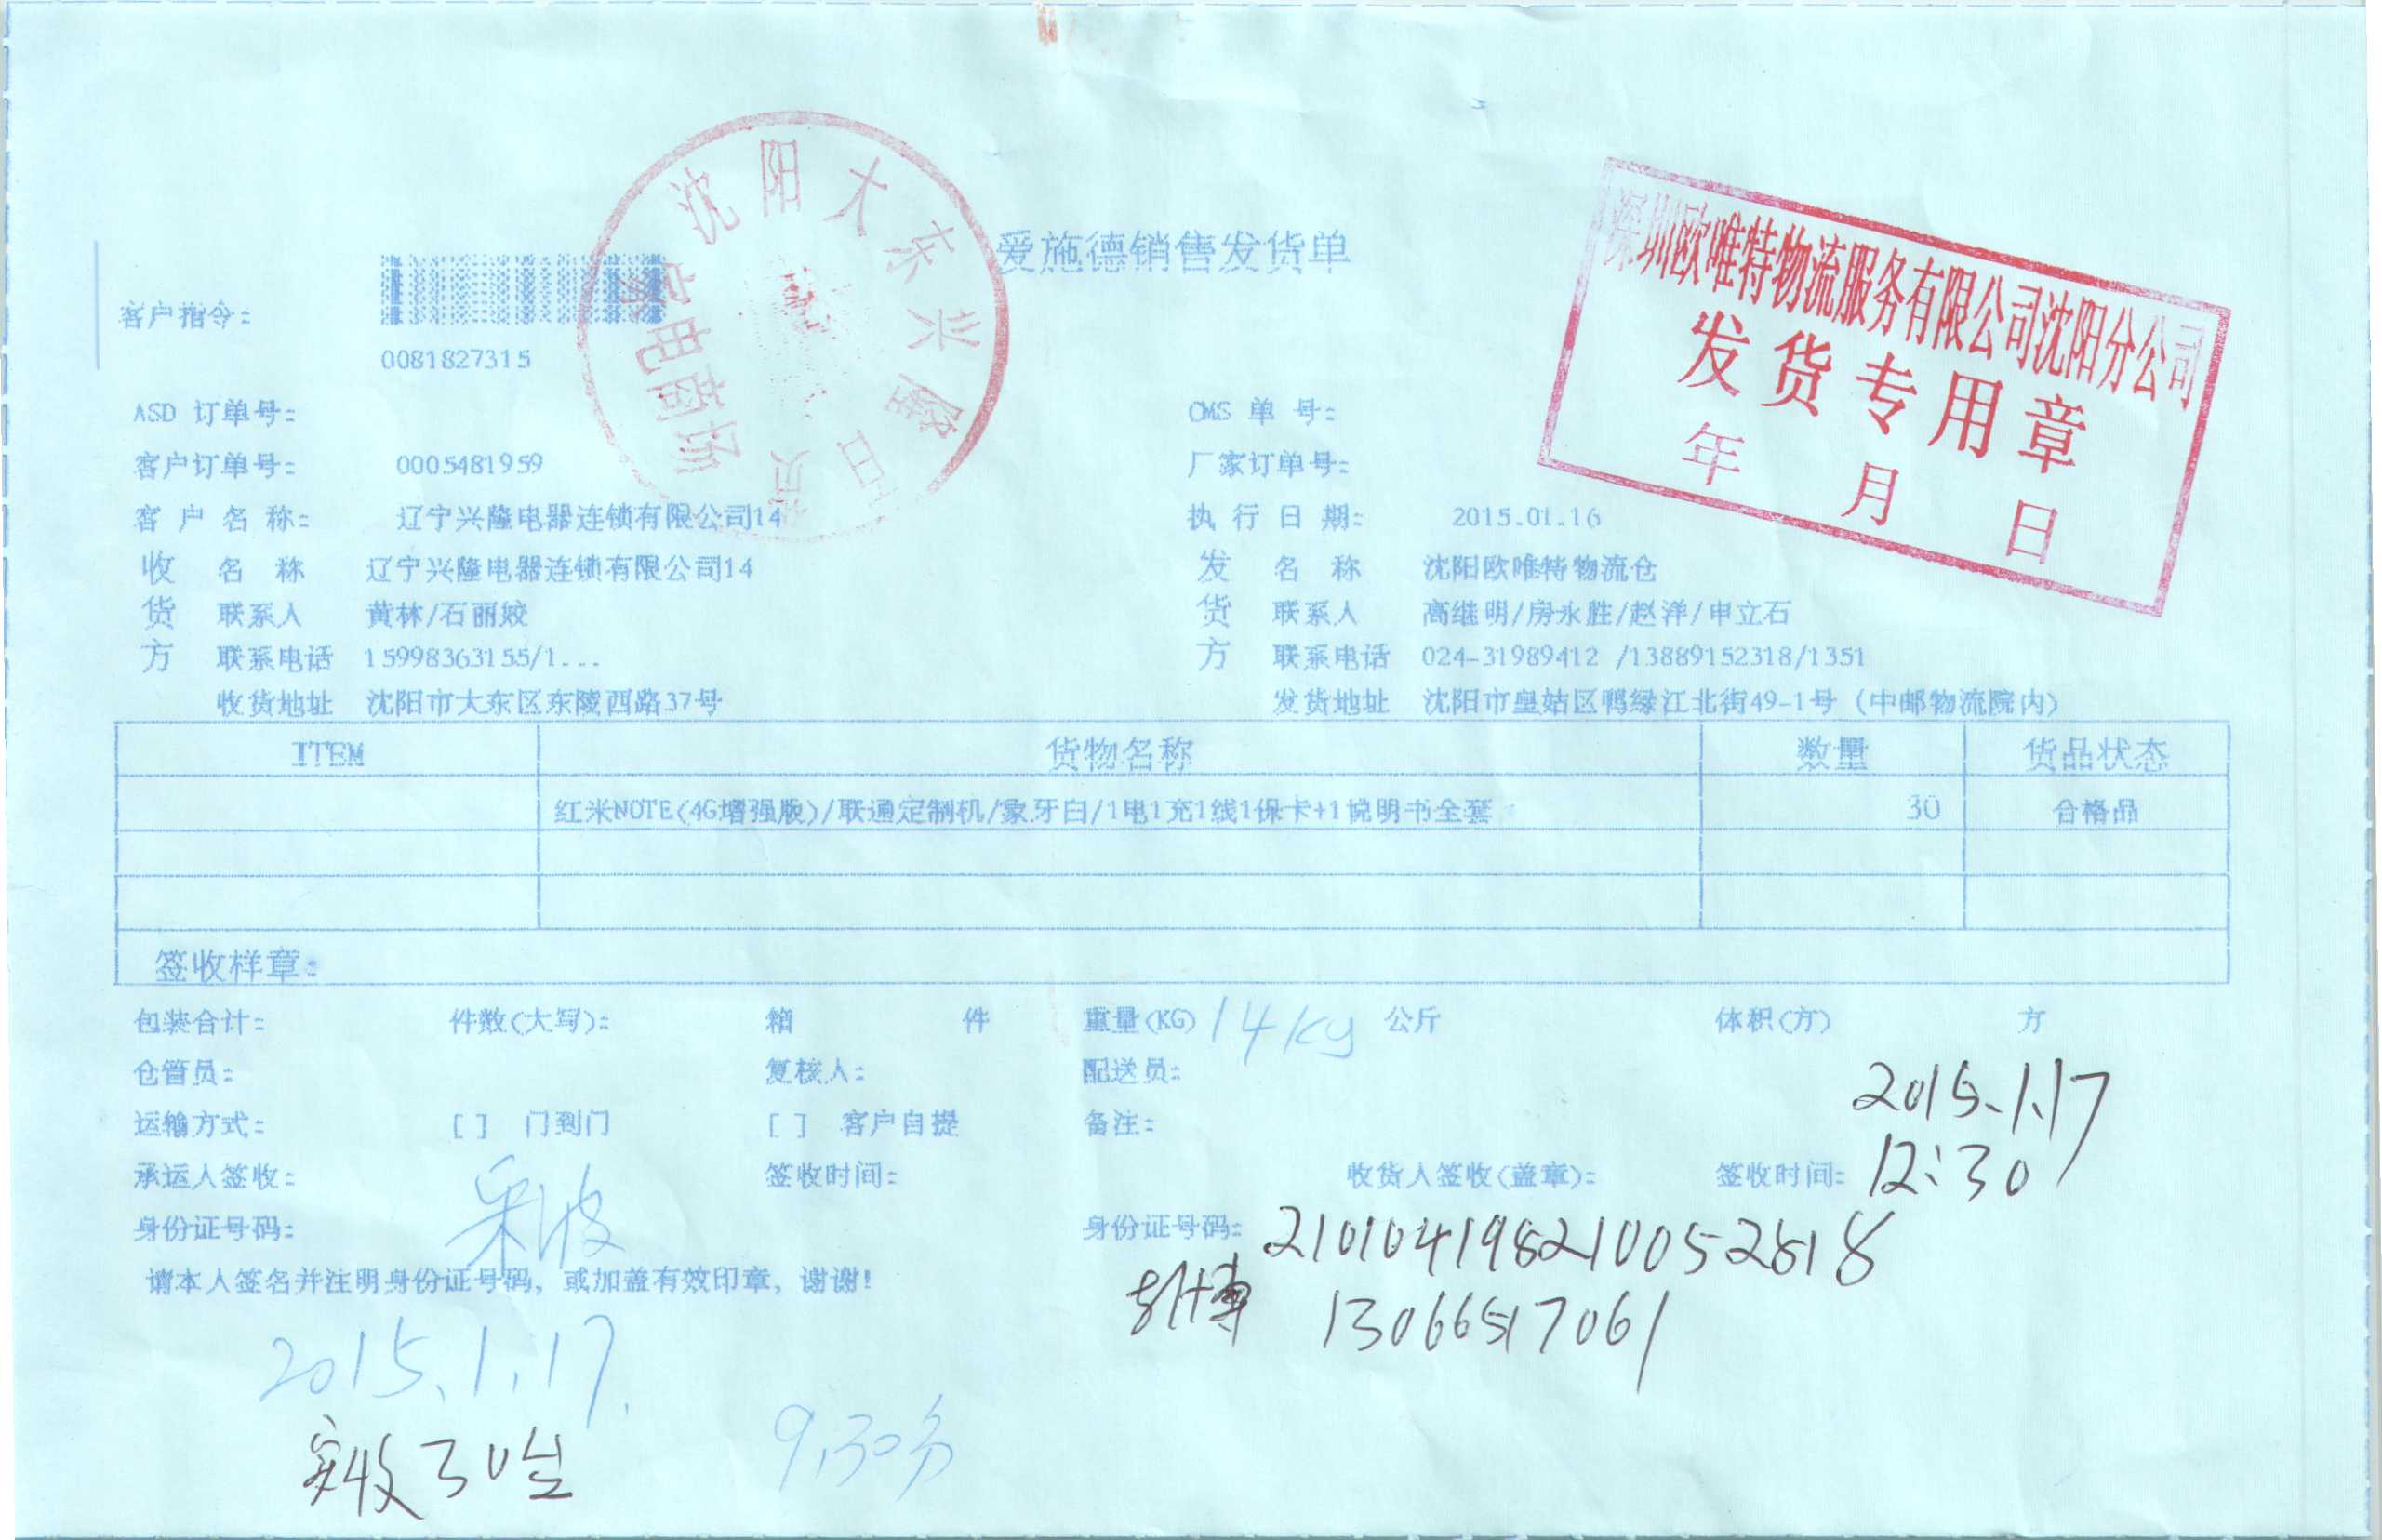 爱施德销售发货单
沈阳大东兴隆百货
家电商场
深圳欧唯特物流服务有限公司沈阳分公司
发货专用章
年 月 日
客户指令:
0081827315
ASD 订单号: CMS 单 号:
客户订单号: 0005481959 厂家订单号:
客 户 名 称: 辽宁兴隆电器连锁有限公司14 执 行 日 期: 2015.01.16
收 名 称 辽宁兴隆电器连锁有限公司14 发 名 称 沈阳欧唯特物流仓
货 联系人 黄林/石丽姣 货 联系人 高继明/房永胜/赵洋/申立石
方 联系电话 15998363155/1... 方 联系电话 024-31989412 /13889152318/1351
收货地址 沈阳市大东区东陵西路37号 发货地址 沈阳市皇姑区鸭绿江北街49-1号 (中邮物流院内)
ITEM 货物名称 数量 货品状态
红米NOTE(4G增强版)/联通定制机/象牙白/1电1充1线1保卡+1说明书全套 30 合格品
签收样章:
包装合计: 件数(大写): 箱 件 重量(KG) 14kg 公斤 体积(方) 方
仓管员: 复核人: 配送员:
2015.1.17
运输方式: [ ] 门到门 [ ] 客户自提 备注:
承运人签收: 签收时间: 收货人签收(盖章): 签收时间: 12:30
身份证号码: 身份证号码: 210104198210052818
请本人签名并注明身份证号码, 或加盖有效印章, 谢谢!
13066517061
2015.1.17.
实收30台 9.30分